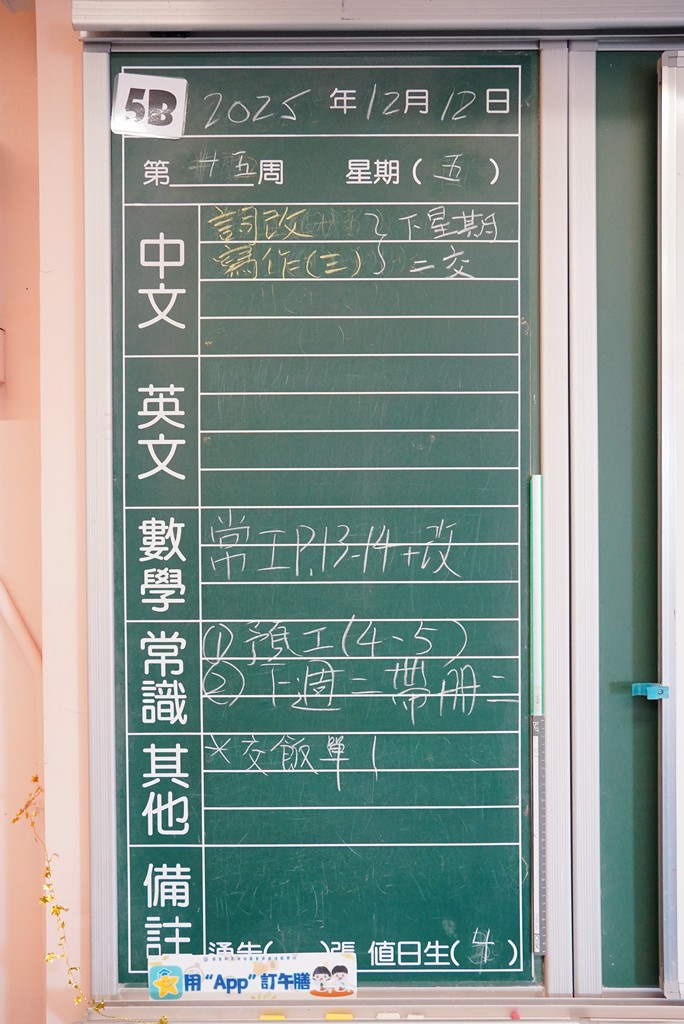 5B 2025 年 12 月 12 日
第 十五 周 星期 ( 五 )
中文
詞改 } 下星期
寫作(三) 二交
英文
數學
常工P.13-14+改
常識
① 預工(4-5)
② 下週二帶冊二
其他
*交飯單!
備註
通告( )張 值日生( )
用 “App” 訂午膳